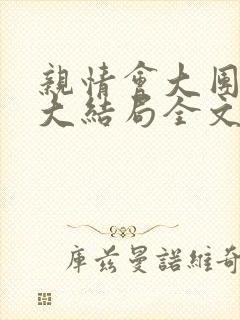 親情會大團
大結局全文
庫茲曼諾維奇